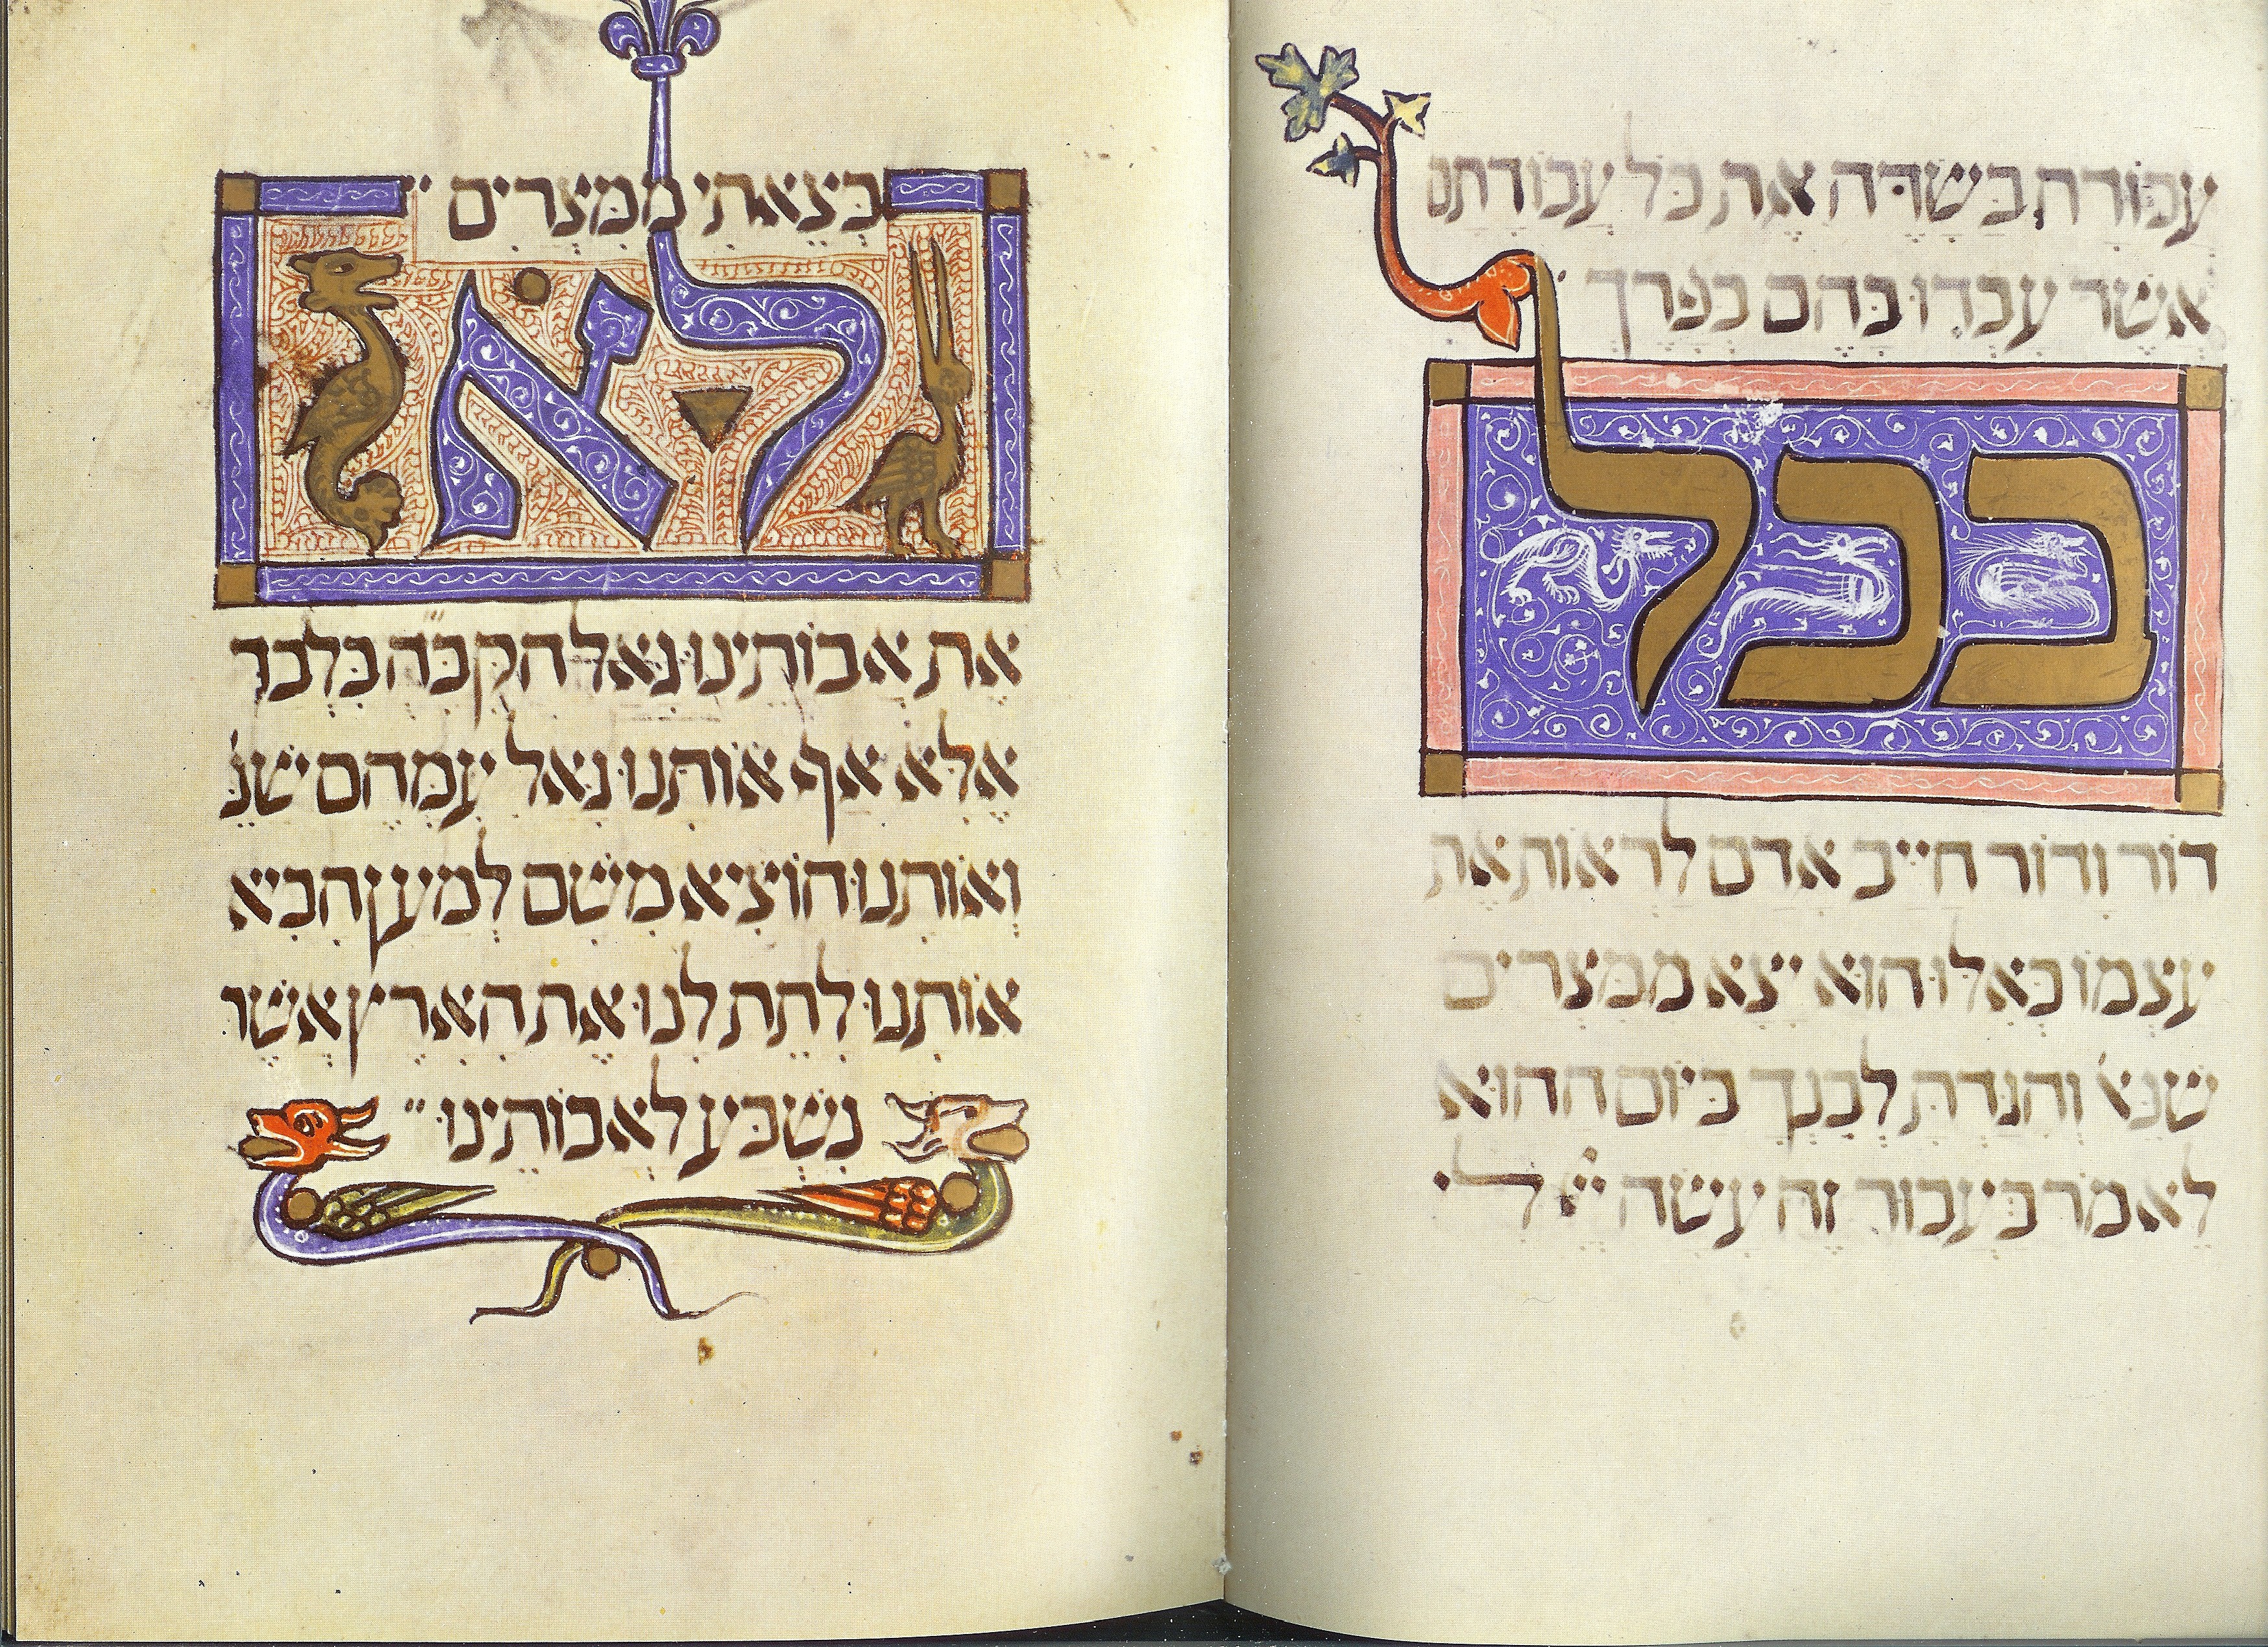 עבודה בשדה את כל עבודתם
אשר עבדו בהם בפרך
בכל
דור ודור חייב אדם לראות את
עצמו כאלו הוא יצא ממצרים
שנא' והגדת לבנך ביום ההוא
לאמר בעבור זה עשה ייי לי
בצאתי ממצרים
לא
את אבותינו גאל הקבה בלבד
אלא אף אותנו גאל עמהם שנ'
ואותנו הוציא משם למען הביא
אותנו לתת לנו את הארץ אשר
נשבע לאבותינו